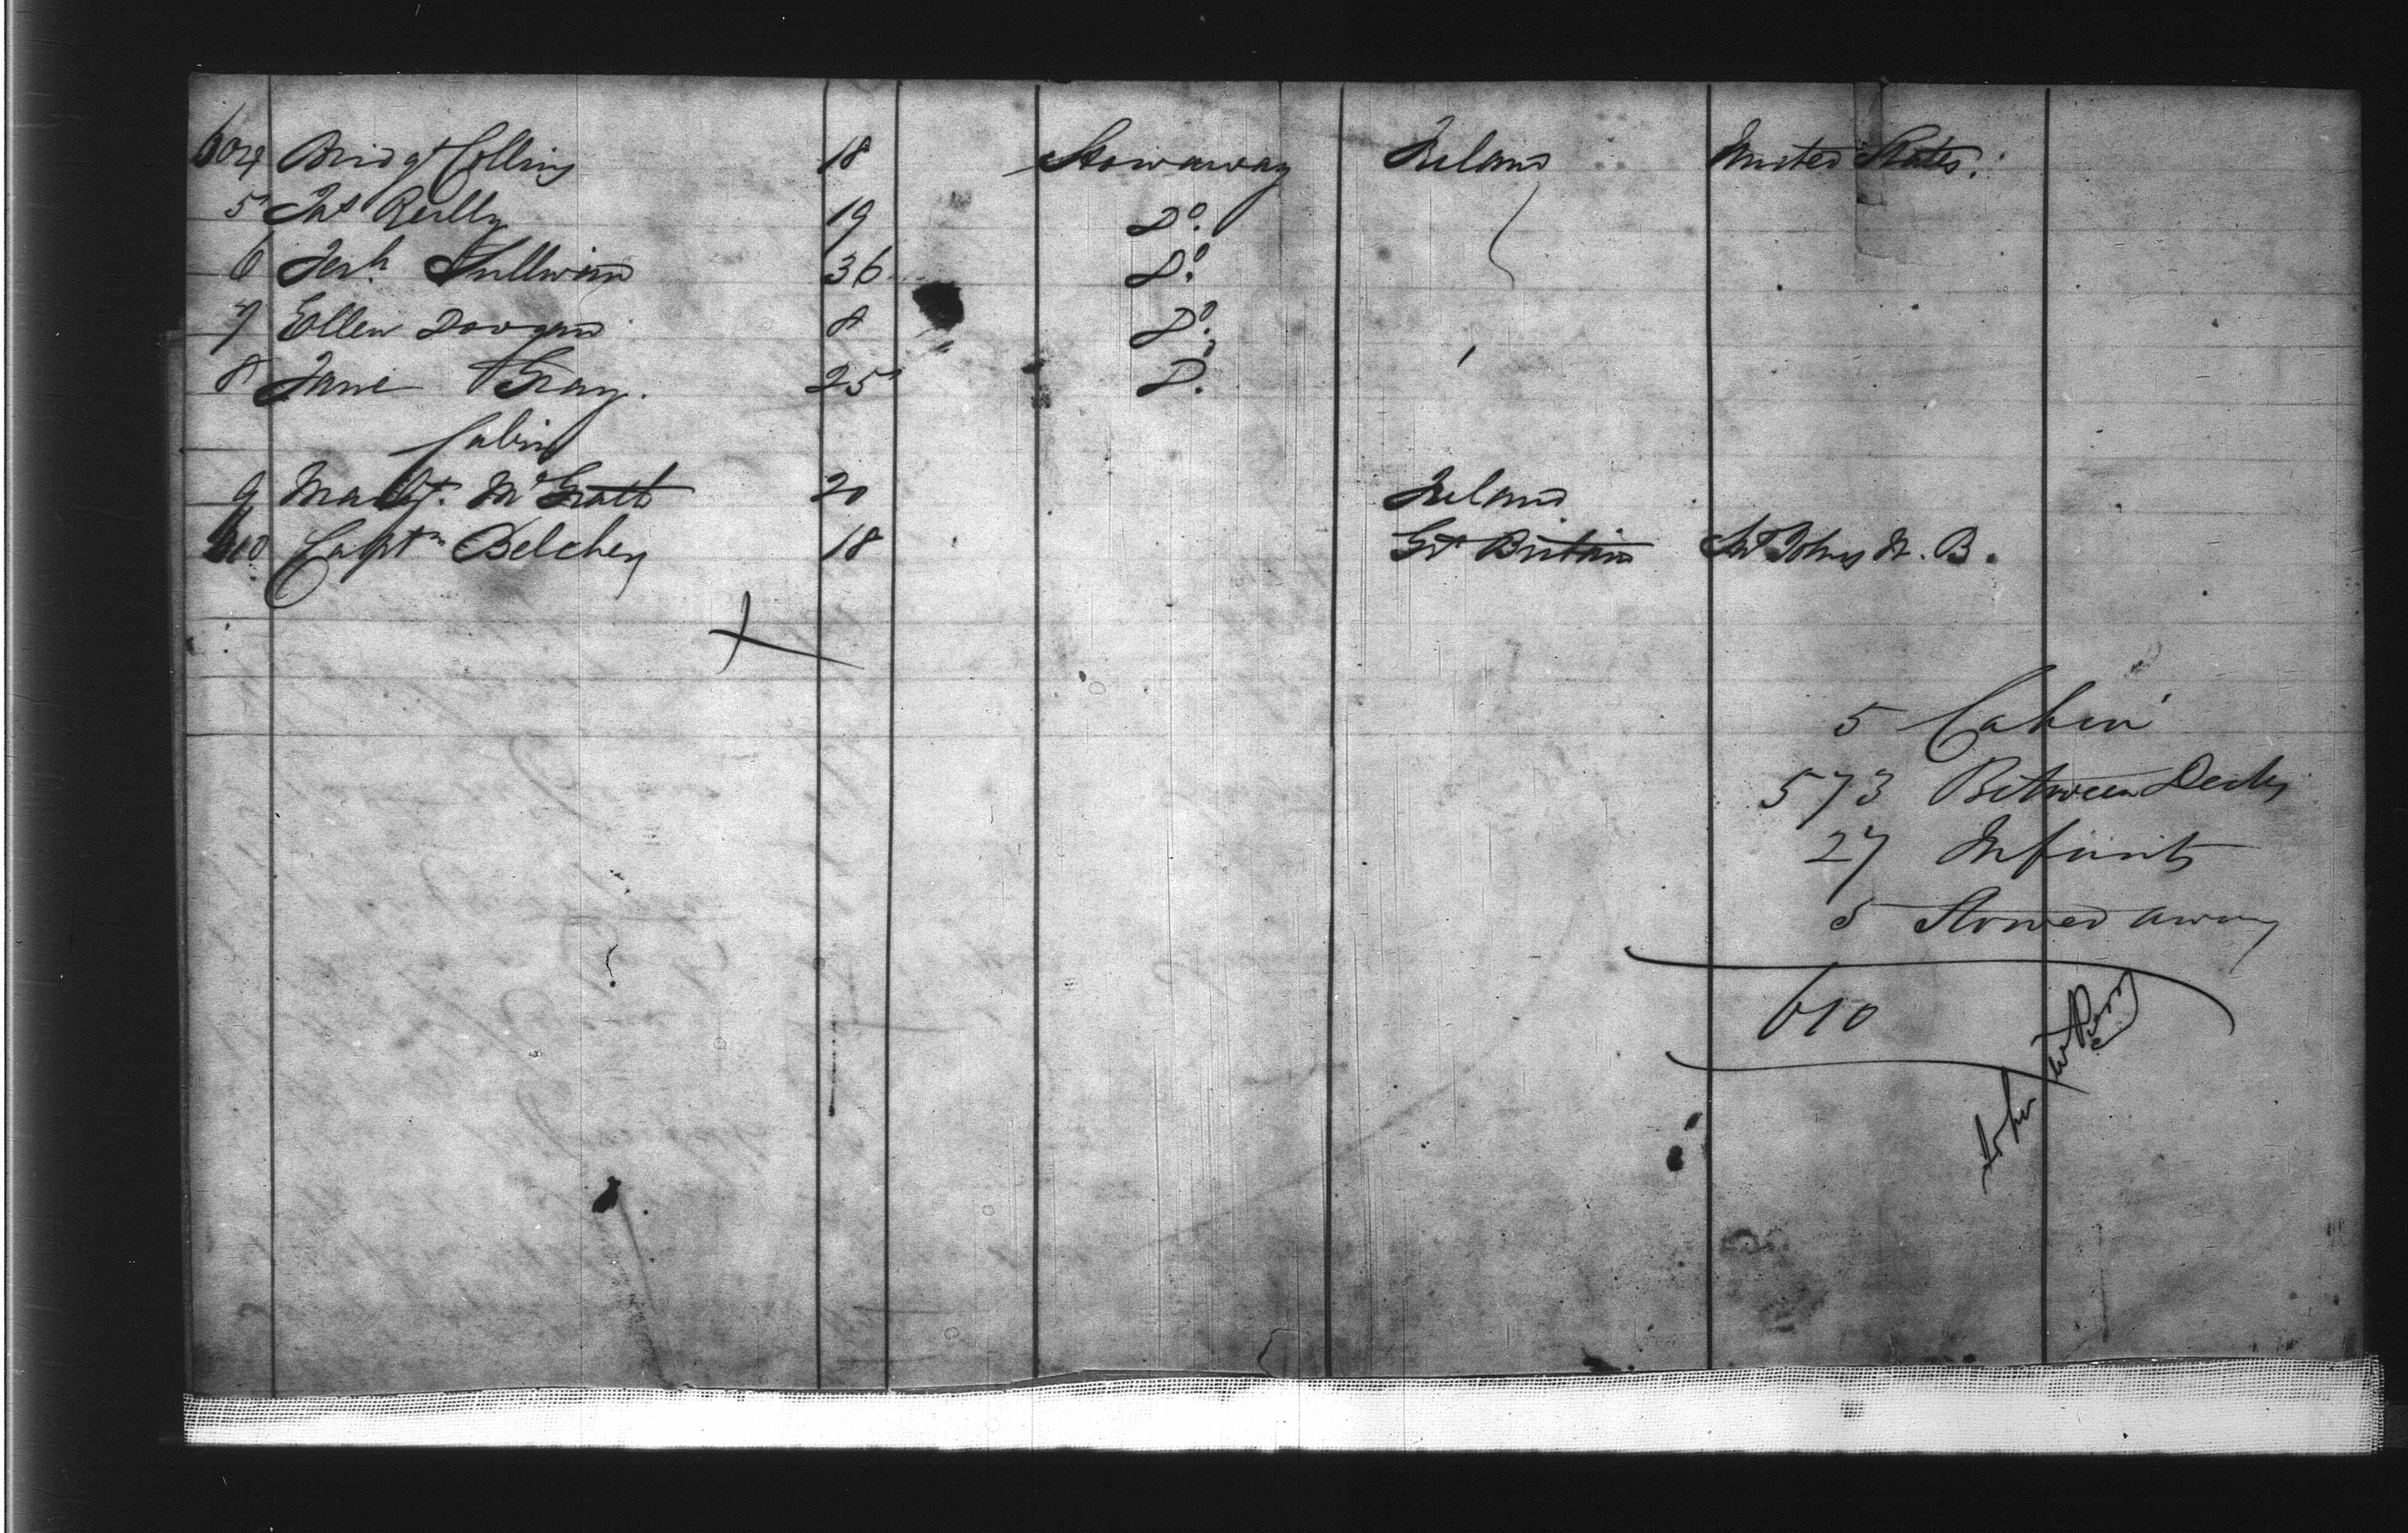 604 Bridgt Collins 18 Stowaway Ireland United States.
5 Jas Reilly 19 Do.
6 Jerh. Sullivan 36 Do.
7 Ellen Doogan 8 Do.
8 Jane Gray. 25 Do.
Cabin
9 Margt. McGrath 20 Ireland
610 Captn Belcher 18 Gt Britain St Johns N. B.
5 Cabin
573 Between Decks
27 Infants
5 Stowed away
610
John W